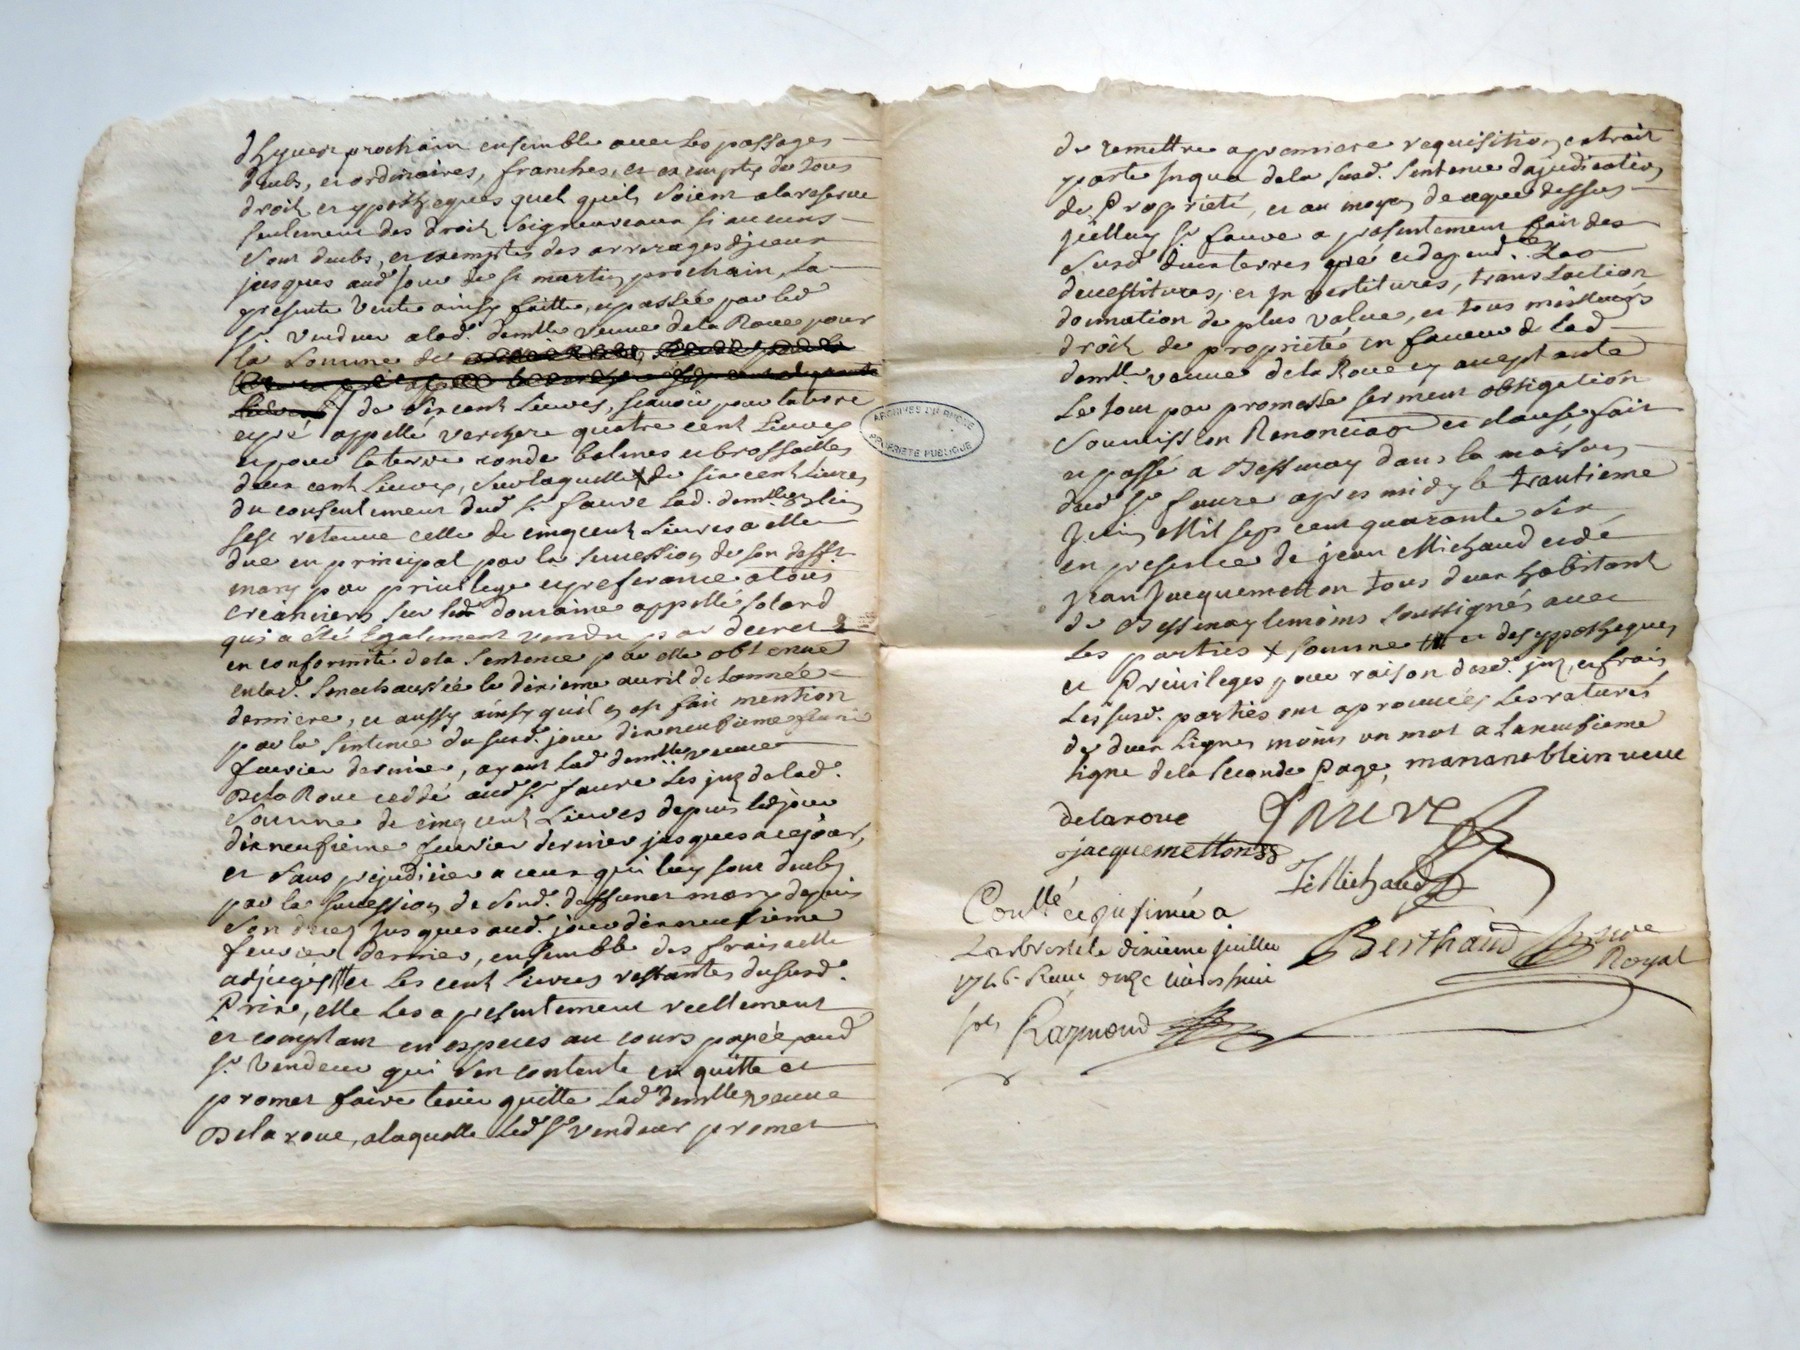 d'hyver prochain ensemble avec les passages
deubs, et ordinaires, franches, et exempte de tous
droit et ypotheques quel quils soient a la reserve
seulement des droit seigneureaux si aucuns
sont deubs, et exemptes des arrerages d'jceux
jusques aud. jour de st martin prochain, la
presente vente ainsy faitte, et passée par led
sr. vendeur a lad. demlle veuve de la Roue pour
la somme de
de six cent livres, scavoir pour la terre
et pré appellé verchere quatre cent livres
et pour la terre ronde balmes et brossailles
deux cent livres, sur laquelle x de six cent livres
du consentement dud. sr. faure lad. demlle blein
sest retenue celle de cinq cent livres a elle
due en principal par la succession de son defft
mary par privilege et preferance a tous
creanciers sur led domaine appellé solard
qui a été egalement vendu par decret
en conformité de la sentence par elle obtenue
en lad. senechaussée le dixieme avril de l'année
derniere, et aussy ainsy quil en est fait mention
par la sentence du susd. jour dixneufieme
fevrier dernier, ayant lad demlle veuve
De la Roue ceddé aud sr faure les jnz de lad.
somme de cinq cent livres depuis led jour
dixneufieme fevrier dernier jusques a ce jour,
et sans prejudicier a ceux qui luy sont deubs
par la succession de sond. deffunct mary depuis
son decez jusques aud. jour dixneufieme
fevrier dernier, ensemble des frais a elle
adjugés et les cent livres restantes du susd.
Prix, elle les a presentement reellement
et comptant en especes au cours payée aud
sr. vendeur qui s'en contente en quitte et
promet faire tenir quitte lad demlle veuve
De la roue, a laquelle led sr vendeur promet
de remettre a premiere requisition extrait
parte in qua de la susd. sentence d'ajudication
de Proprieté, et au moyen de ce que dessus
jcelluy sr. faure a presentement fait des
susd. deux terres pré et depend.
devestitures, et jnvestitures, translaction
donnation de plus value, et tous
droit de proprieté en faveur de lad
demlle. veuve de la Roue y acceptante
le tout par promesse serment obligation
soumission Renonciaon et clause, fait
et passé a Bessenay dans la maison
dud sr. faure apres midy le trantieme
Juin Mil sept cent quarante six
en presence de jean Michaud et de
jean jacquemetton tous deux habitant
de Bessenay temoins soussignés avec
les parties x somme et des ypotheques
et Privileges pour raison desd. jnz, et frais
les susd. parties ont aprouvées les ratures
de deux lignes moins un mot a la neufieme
ligne de la seconde Page, mananablein veue
delaroue faure
jacquemetton
J Michaud
Conllé et jnsinué a
Larbresle le dixieme juillet
1746. Reçu onze livres huit
sols Raymond
Berthaud nore
Royal
ARCHIVES DU RHONE
PROPRIETE PUBLIQUE